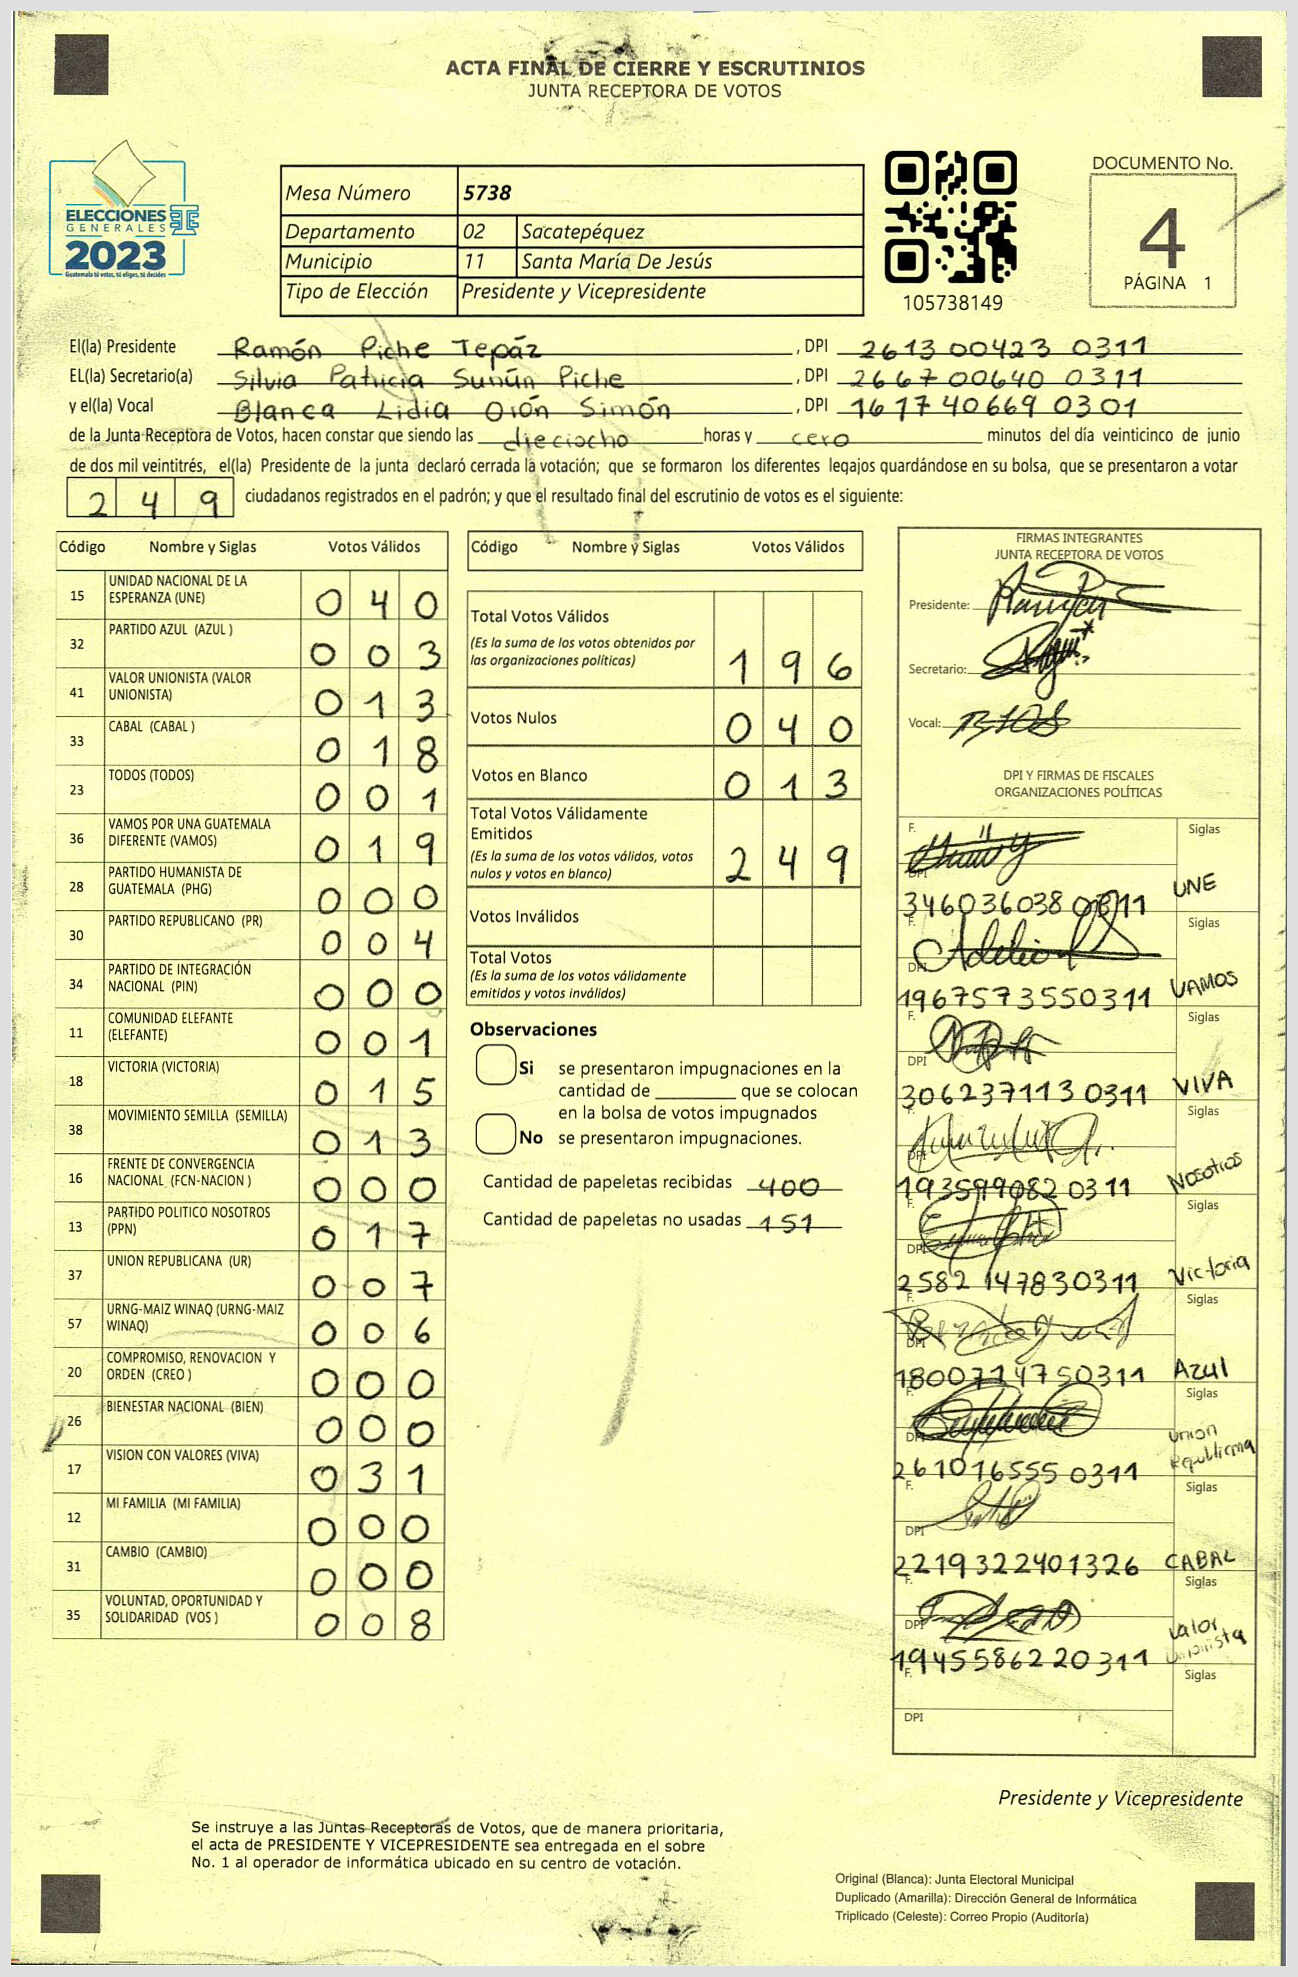 ACTA FINAL DE CIERRE Y ESCRUTINIOS
JUNTA RECEPTORA DE VOTOS
ELECCIONES
GENERALES
2023
Guatemala tú votas, tú eliges, tú decides
Mesa Número 5738
Departamento 02 Sacatepéquez
Municipio 11 Santa María De Jesús
Tipo de Elección Presidente y Vicepresidente
105738149
DOCUMENTO No.
4
PÁGINA 1
El(la) Presidente Ramón Piche Tepáz, DPI 2613 00423 0311
EL(la) Secretario(a) Silvia Patricia Sunún Piche, DPI 2667 00640 0311
y el(la) Vocal Blanca Lidia Orón Simón, DPI 1617 40669 0301
de la Junta Receptora de Votos, hacen constar que siendo las dieciocho horas y cero minutos del día veinticinco de junio
de dos mil veintitrés, el(la) Presidente de la junta declaró cerrada la votación; que se formaron los diferentes legajos guardándose en su bolsa, que se presentaron a votar
249 ciudadanos registrados en el padrón; y que el resultado final del escrutinio de votos es el siguiente:
Código Nombre y Siglas Votos Válidos
15 UNIDAD NACIONAL DE LA ESPERANZA (UNE) 040
32 PARTIDO AZUL (AZUL ) 003
41 VALOR UNIONISTA (VALOR UNIONISTA) 013
33 CABAL (CABAL ) 018
23 TODOS (TODOS) 001
36 VAMOS POR UNA GUATEMALA DIFERENTE (VAMOS) 019
28 PARTIDO HUMANISTA DE GUATEMALA (PHG) 000
30 PARTIDO REPUBLICANO (PR) 004
34 PARTIDO DE INTEGRACIÓN NACIONAL (PIN) 000
11 COMUNIDAD ELEFANTE (ELEFANTE) 001
18 VICTORIA (VICTORIA) 015
38 MOVIMIENTO SEMILLA (SEMILLA) 013
16 FRENTE DE CONVERGENCIA NACIONAL (FCN-NACION ) 000
13 PARTIDO POLITICO NOSOTROS (PPN) 017
37 UNION REPUBLICANA (UR) 007
57 URNG-MAIZ WINAQ (URNG-MAIZ WINAQ) 006
20 COMPROMISO, RENOVACION Y ORDEN (CREO ) 000
26 BIENESTAR NACIONAL (BIEN) 000
17 VISION CON VALORES (VIVA) 031
12 MI FAMILIA (MI FAMILIA) 000
31 CAMBIO (CAMBIO) 000
35 VOLUNTAD, OPORTUNIDAD Y SOLIDARIDAD (VOS ) 008
Código Nombre y Siglas Votos Válidos
Total Votos Válidos
(Es la suma de los votos obtenidos por
las organizaciones políticas) 196
Votos Nulos 040
Votos en Blanco 013
Total Votos Válidamente
Emitidos
(Es la suma de los votos válidos, votos
nulos y votos en blanco) 249
Votos Inválidos
Total Votos
(Es la suma de los votos válidamente
emitidos y votos inválidos)
Observaciones
Si se presentaron impugnaciones en la
cantidad de ________ que se colocan
en la bolsa de votos impugnados
No se presentaron impugnaciones.
Cantidad de papeletas recibidas 400
Cantidad de papeletas no usadas 151
FIRMAS INTEGRANTES
JUNTA RECEPTORA DE VOTOS
Presidente:
Secretario:
Vocal:
DPI Y FIRMAS DE FISCALES
ORGANIZACIONES POLÍTICAS
F. Siglas
DPI
346036038 0311 UNE
Siglas
DPI
1967573550311 VAMOS
F. Siglas
DPI
306237113 0311 VIVA
Siglas
DPI
193599082 0311 Nosotros
F. Siglas
DPI
2582 147830311 Victoria
F. Siglas
DPI
1800714750311 Azul
F. Siglas
DPI
261016555 0311 Union Republicana
F. Siglas
DPI
2219322401326 CABAL
F. Siglas
DPI
1945586220311 Valor Unionista
F. Siglas
DPI
Presidente y Vicepresidente
Se instruye a las Juntas Receptoras de Votos, que de manera prioritaria,
el acta de PRESIDENTE Y VICEPRESIDENTE sea entregada en el sobre
No. 1 al operador de informática ubicado en su centro de votación.
Original (Blanca): Junta Electoral Municipal
Duplicado (Amarilla): Dirección General de Informática
Triplicado (Celeste): Correo Propio (Auditoría)